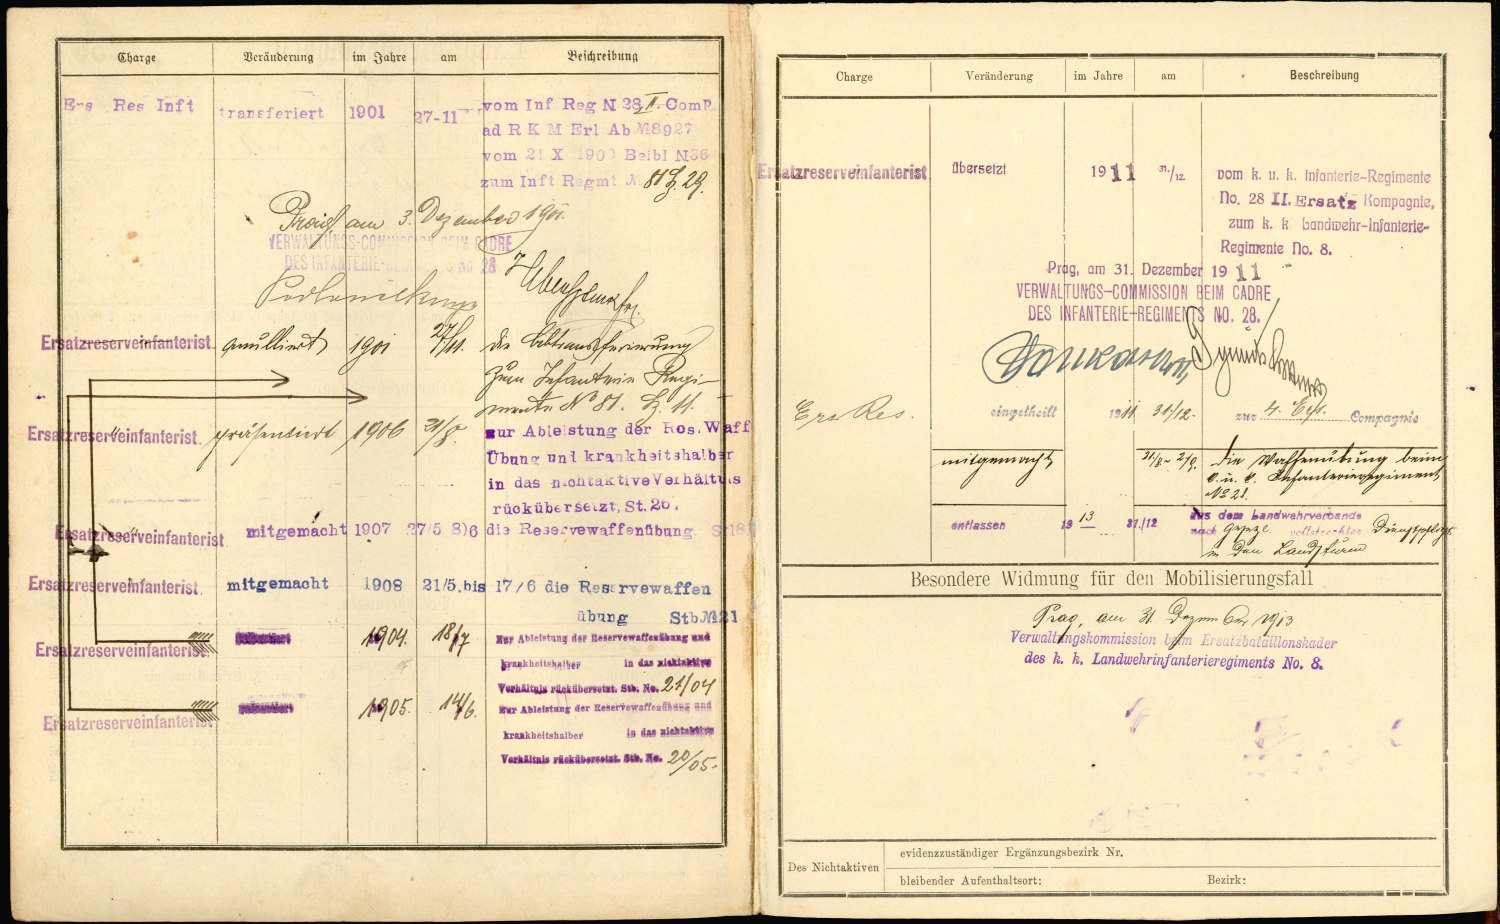 Charge Veränderung im Jahre am Beschreibung
Ers Res Inft transferiert 1901 27-11 vom Inf Reg N 28 II. Comp.
ad R K M Erl Ab № 8927
vom 21 X 1900 Beibl N 36
zum Inft Regmt № 81 Z. 29.
Prag, am 3. Dezember 1901.
VERWALTUNGS-COMMISSION BEIM CADRE
DES INFANTERIE-REGIMENTS No 28
Ersatzreserveinfanterist. anulliert 1901 27/11. die Abtransferierung
zum Infanterie Regi-
mente No 81. Z. 11.
Ersatzreserveinfanterist. präsentiert 1906 21/8. zur Ableistung der Res. Waff
Übung und krankheitshalber
in das nichtaktive Verhältnis
rückübersetzt, St. 26.
Ersatzreserveinfanterist mitgemacht 1907 27/5 8)6 die Reservewaffenübung
Ersatzreserveinfanterist. mitgemacht 1908 21/5. bis 17/6 die Reservewaffen
übung Stb № 21
Ersatzreserveinfanterist. 1904. 18/7 Zur Ableistung der Reservewaffenübung und
krankheitshalber in das nichtaktive
Verhältnis rückübersetzt. Stb. No. 21/04
Ersatzreserveinfanterist. 1905. 14/6. Zur Ableistung der Reservewaffenübung und
krankheitshalber in das nichtaktive
Verhältnis rückübersetzt. Stb. No. 20/05.
Charge Veränderung im Jahre am Beschreibung
Ersatzreserveinfanterist übersetzt 1911 31./12. vom k. u. k. Infanterie-Regimente
No. 28 II. Ersatz Kompagnie,
zum k. k. Landwehr-Infanterie-
Regimente No. 8.
Prag, am 31. Dezember 1911
VERWALTUNGS-COMMISSION BEIM CADRE
DES INFANTERIE-REGIMENTS NO. 28.
Ers Res. eingetheilt 1911 31/12. zur 4. Ers. Compagnie
mitgemacht 21/8 - 2/9. die Waffenübung beim
k. u. k. Infanterieregiment
No. 28.
entlassen 1913 31./12 aus dem Landwehrverbande
nach Gesetz vollstreckter Dienstpflicht
in den Landsturm
Besondere Widmung für den Mobilisierungsfall
Prag, am 31 Dezember 1913
Verwaltungskommission beim Ersatzbataillonskader
des k. k. Landwehrinfanterieregiments No. 8.
Des Nichtaktiven
evidenzzuständiger Ergänzungsbezirk Nr.
bleibender Aufenthaltsort: Bezirk: